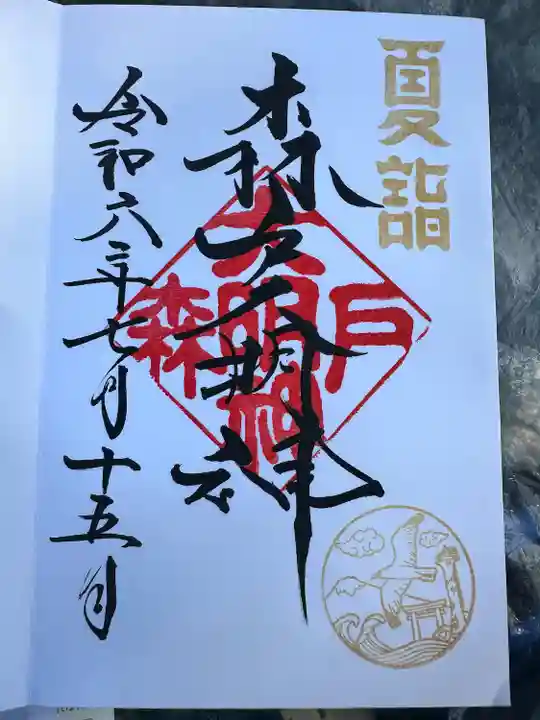 夏詣
森戸大明神
戸
大明神
森
令和六年七月十五日